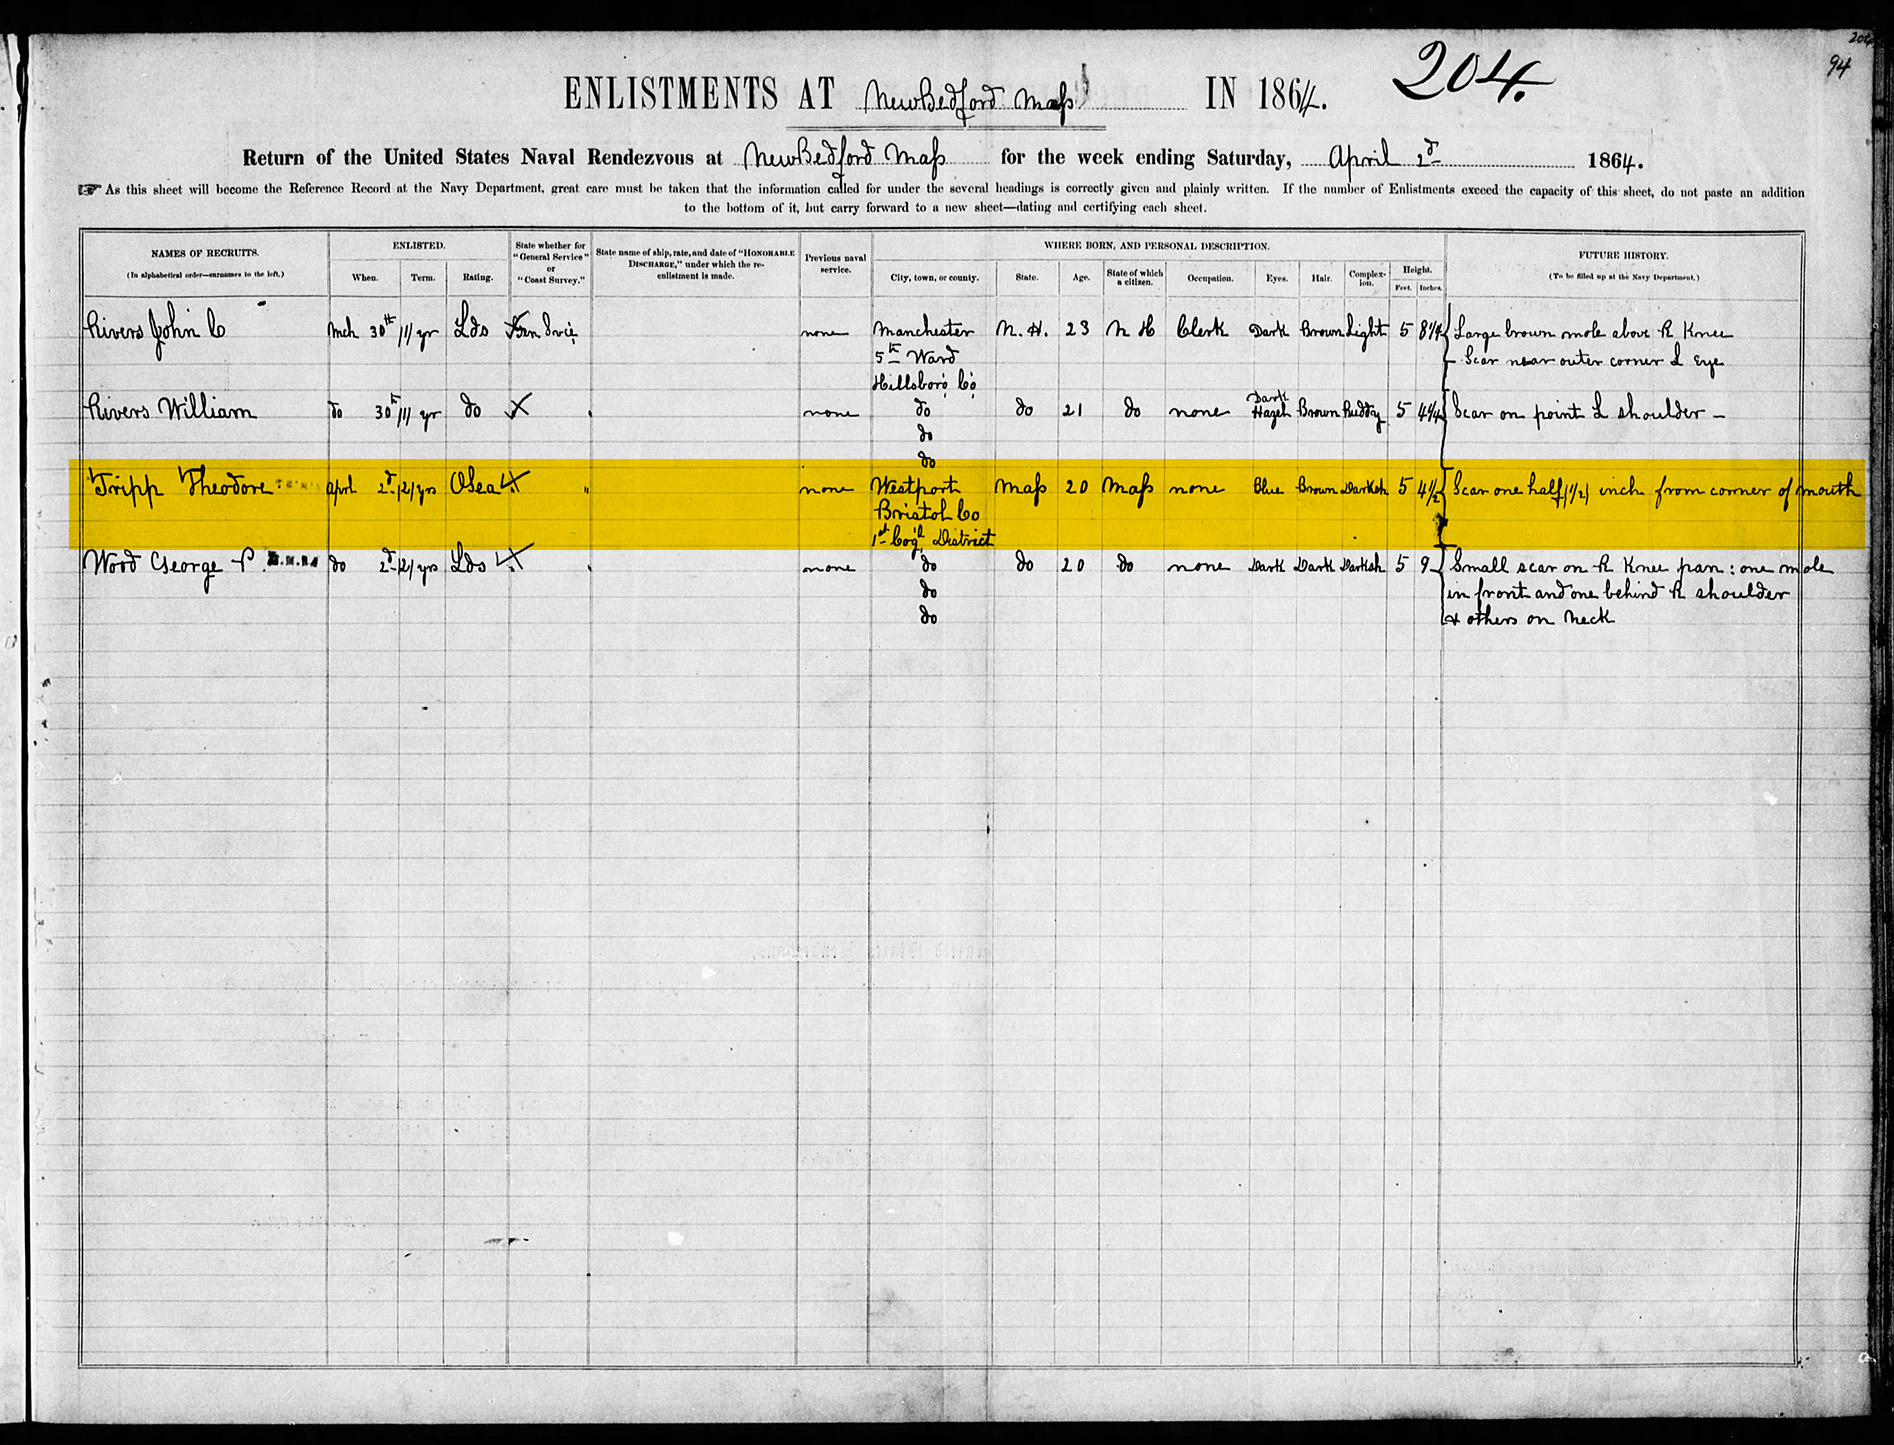 204
94
ENLISTMENTS AT New Bedford Maſs IN 1864. 204.
Return of the United States Naval Rendezvous at New Bedford Maſs for the week ending Saturday, April 2d 1864.
☞ As this sheet will become the Reference Record at the Navy Department, great care must be taken that the information called for under the several headings is correctly given and plainly written. If the number of Enlistments exceed the capacity of this sheet, do not paste an addition
to the bottom of it, but carry forward to a new sheet—dating and certifying each sheet.
NAMES OF RECRUITS.
(In alphabetical order—surnames to the left.)
ENLISTED.
When. Term. Rating.
State whether for "General Service" or "Coast Survey."
State name of ship, rate, and date of "HONORABLE DISCHARGE," under which the re-enlistment is made.
Previous naval service.
WHERE BORN, AND PERSONAL DESCRIPTION.
City, town, or county. State. Age. State of which a citizen. Occupation. Eyes. Hair. Complexion. Height. Feet. Inches.
FUTURE HISTORY.
(To be filled up at the Navy Department.)
Rivers John C Mch 30th /1/ yr Lds Gen Srvie none Manchester N. H. 23 N H Clerk Dark Brown Light 5 8¼ Large brown mole above R Knee
5th Ward Scar near outer corner L Eye
Hillsboro Co
Rivers William do 30th /1/ yr do " none do do 21 do none Dark Hazel Brown Ruddy 5 4¼ Scar on point L shoulder —
do
do
Tripp Theodore April 2d /2/ yrs OSea " none Westport Maſs 20 Maſs none Blue Brown Darksh 5 4½ Scar one half (1/2) inch from corner of mouth
Bristol Co
1st Cog'l District
Wood George P. do 2d /2/ yrs Lds " none do do 20 do none Dark Dark Darksh 5 9 Small scar on R Knee pan: one mole
do in front and one behind R shoulder
do & others on neck